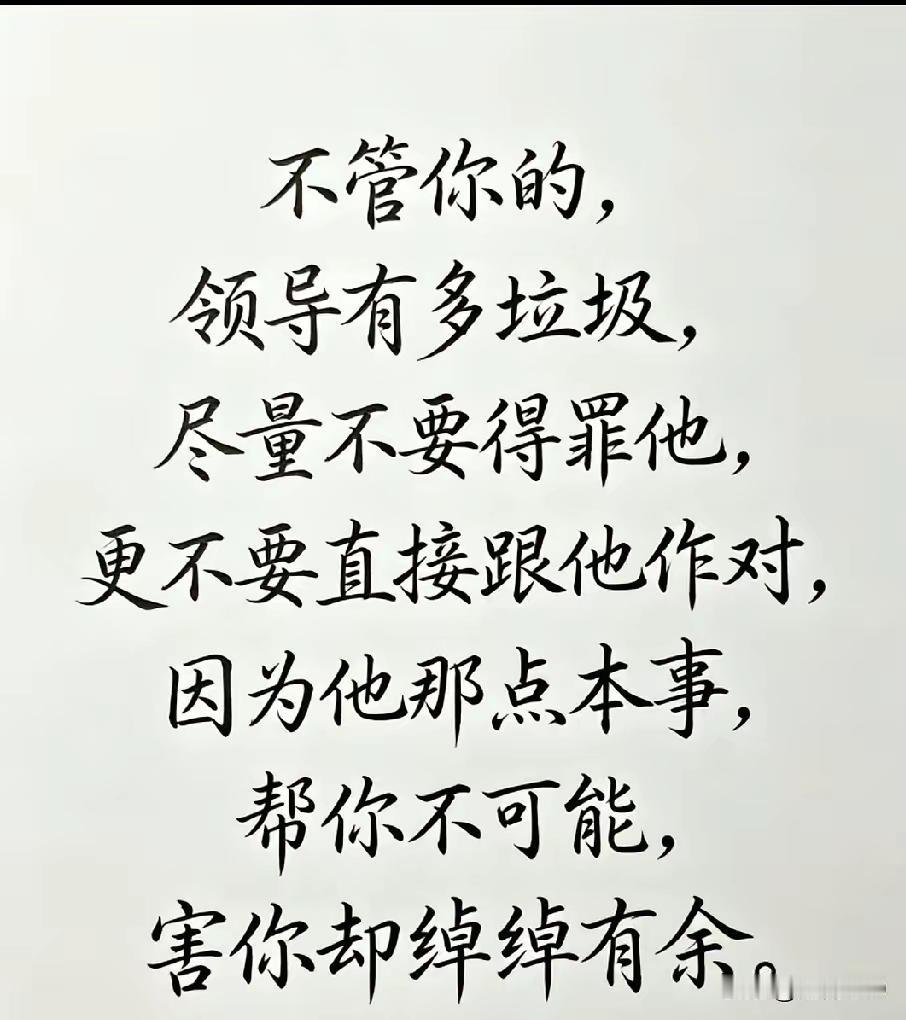 不管你的，
领导有多垃圾，
尽量不要得罪他，
更不要直接跟他作对，
因为他那点本事，
帮你不可能，
害你却绰绰有余。